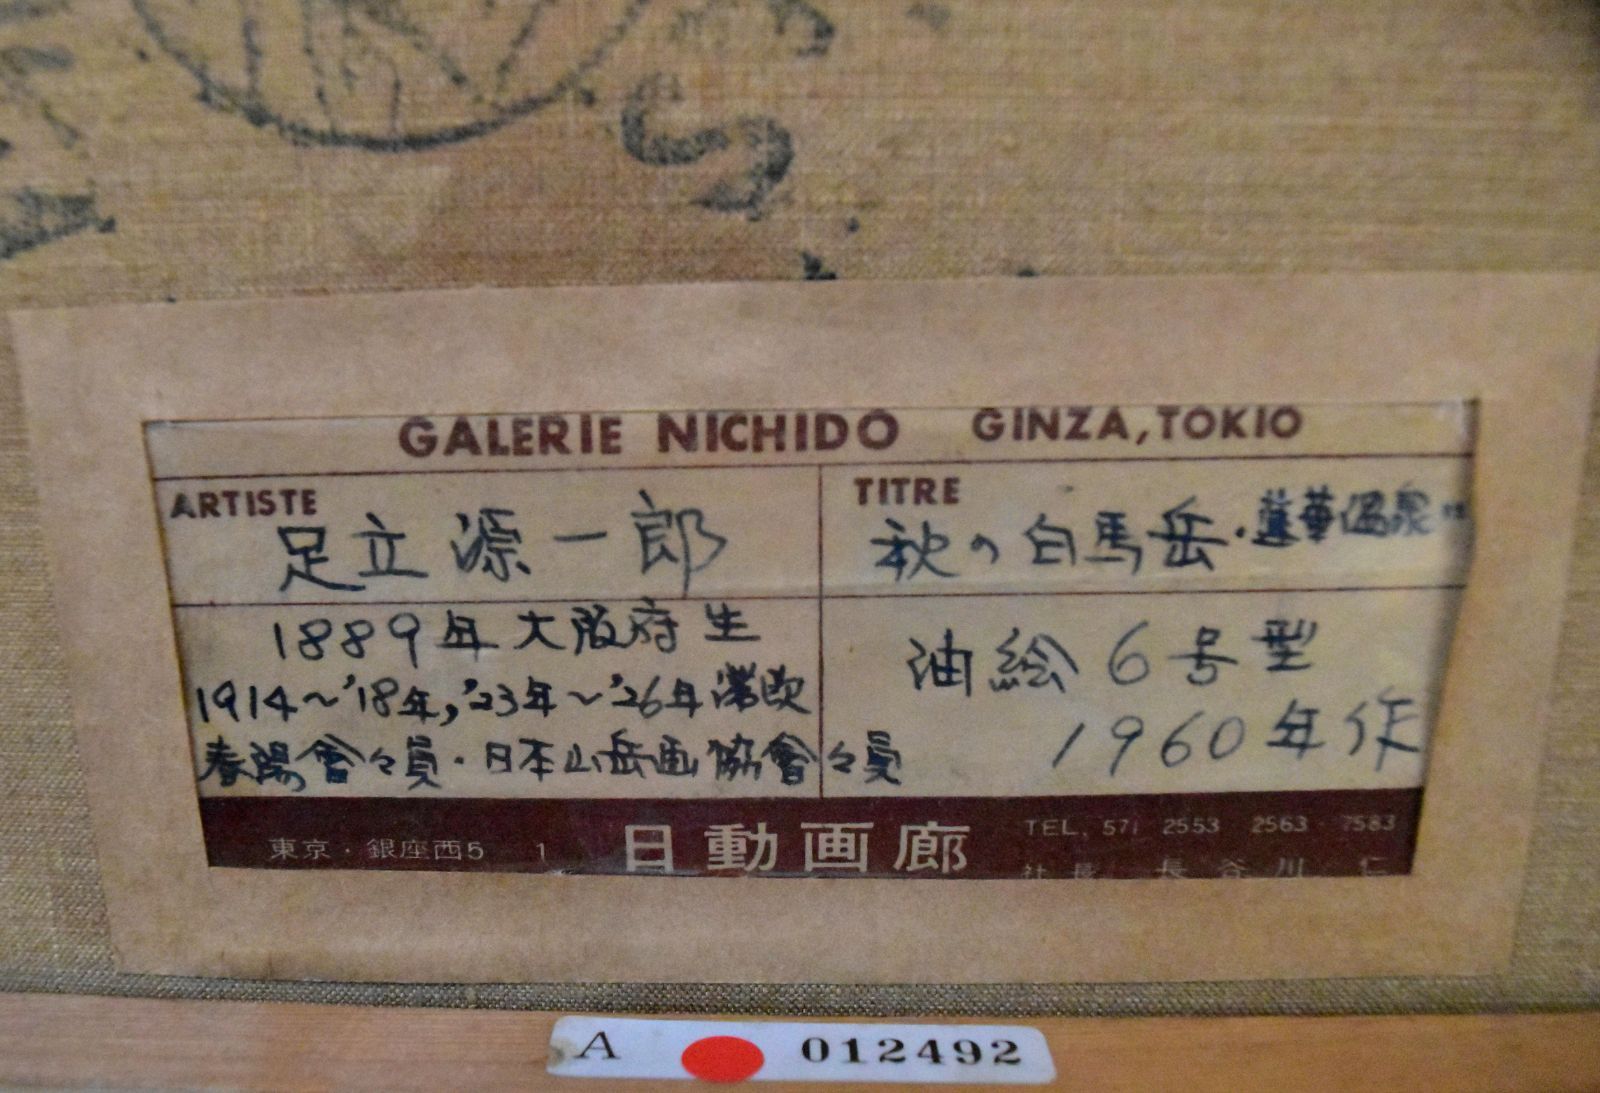 GALERIE NICHIDO GINZA, TOKIO
ARTISTE
足立源一郎
TITRE
秋の白馬岳・蓮華温泉
1889年大阪府生
1914~'18年,'23年~'26年滞欧
春陽會々員・日本山岳画協會々員
油絵6号型
1960年作
東京・銀座西5 1
日動画廊
TEL. 571 2553 2563 7583
社長 長谷川 仁
A 012492